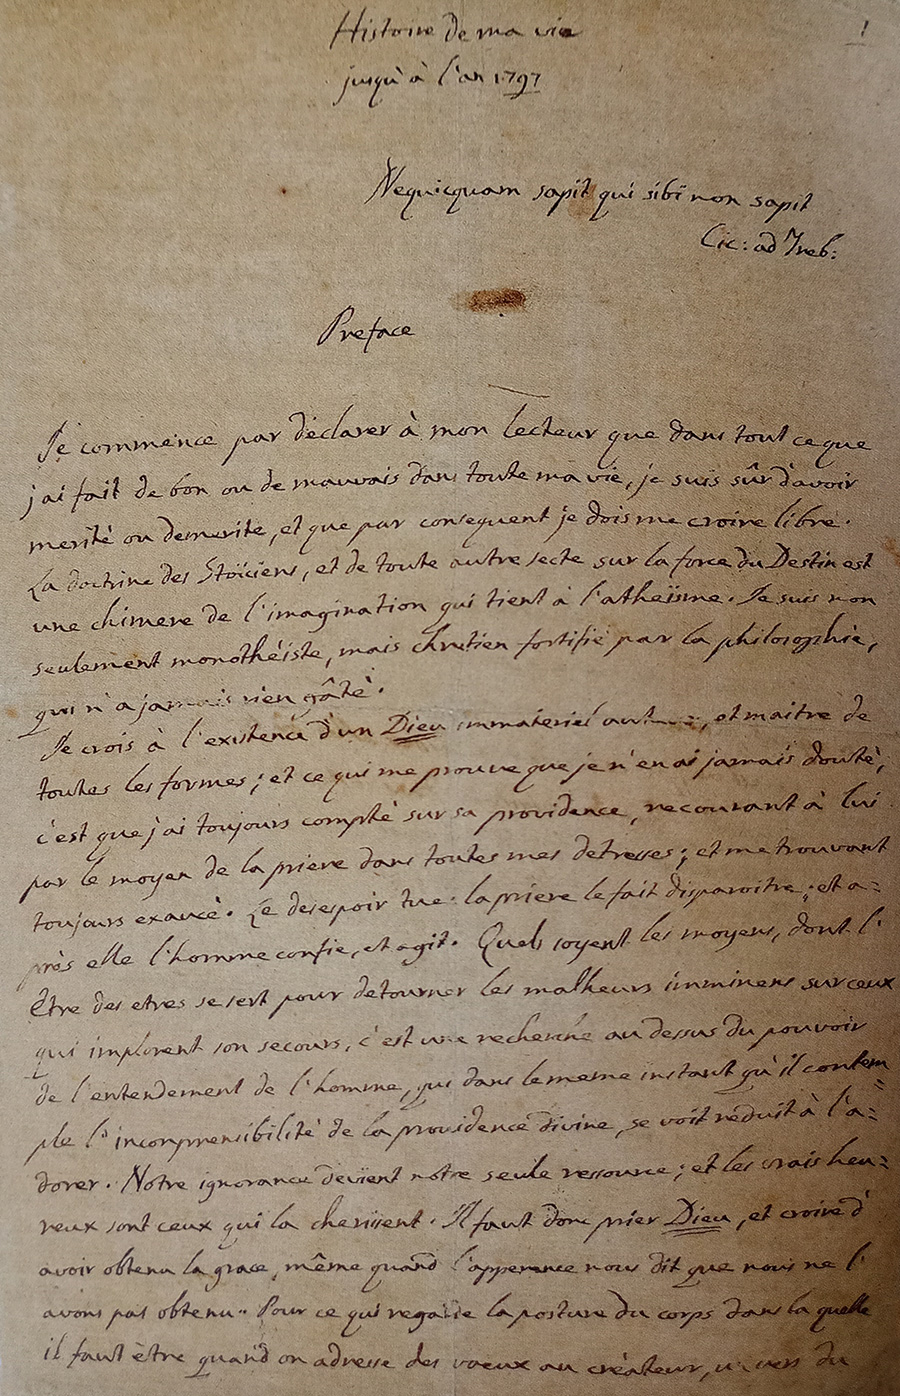 Histoire de ma vie
1
jusqu'à l'an 1797
Nequicquam sapit qui sibi non sapit
Cic: ad Treb:
Preface
Je commence par déclarer à mon lecteur que dans tout ce que
j'ai fait de bon ou de mauvais dans toute ma vie, je suis sûr d'avoir
merité ou demerité, et que par consequent je dois me croire libre.
La doctrine des Stoïciens, et de toute autre secte sur la force du Destin est
une chimere de l'imagination qui tient à l'atheïsme. Je suis non
seulement monothéiste, mais chretien fortifié par la philosophie,
qui n'a jamais rien gâté.
Je crois à l'existence d'un Dieu immateriel, et maitre de
toutes les formes; et ce qui me prouve que je n'en ai jamais douté,
c'est que j'ai toujours compté sur sa providence, recourant à lui
par le moyen de la priere dans toutes mes detresses; et me trouvant
toujours exaucé. Le desespoir tue: la priere le fait disparoitre; et a=
près elle l'homme confie, et agit. Quels soyent les moyens, dont l'
Être des etres se sert pour detourner les malheurs imminens sur ceux
qui implorent son secours, c'est une recherche au dessus du pouvoir
de l'entendement de l'homme, qui dans le meme instant qu'il contem=
ple l'incomprensibilité de la providence divine, se voit réduit à l'a=
dorer. Notre ignorance devient notre seule ressource; et les vrais heu=
reux sont ceux qui la cherissent. Il faut donc prier Dieu, et croire d'
avoir obtenu la grace, même quand l'apperence nous dit que nous ne l'
avons pas obtenu. Pour ce qui regarde la posture du corps dans la quelle
il faut être quand on adresse des voeux au créateur, un vers du